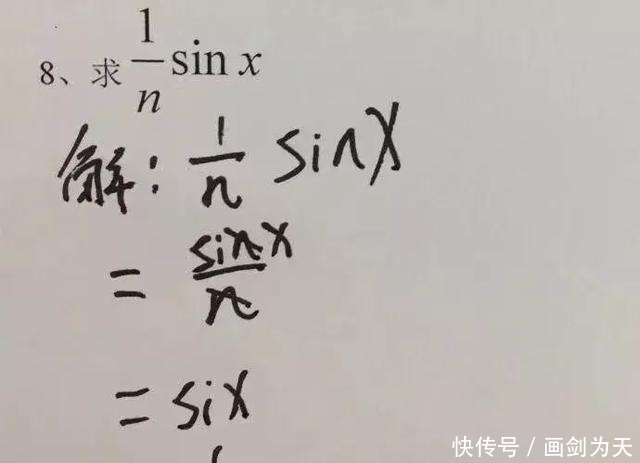 8、求 \frac{1}{n} sin x
解: \frac{1}{n} sinx
= \frac{sinx}{n}
= six
快传号 / 画剑为天